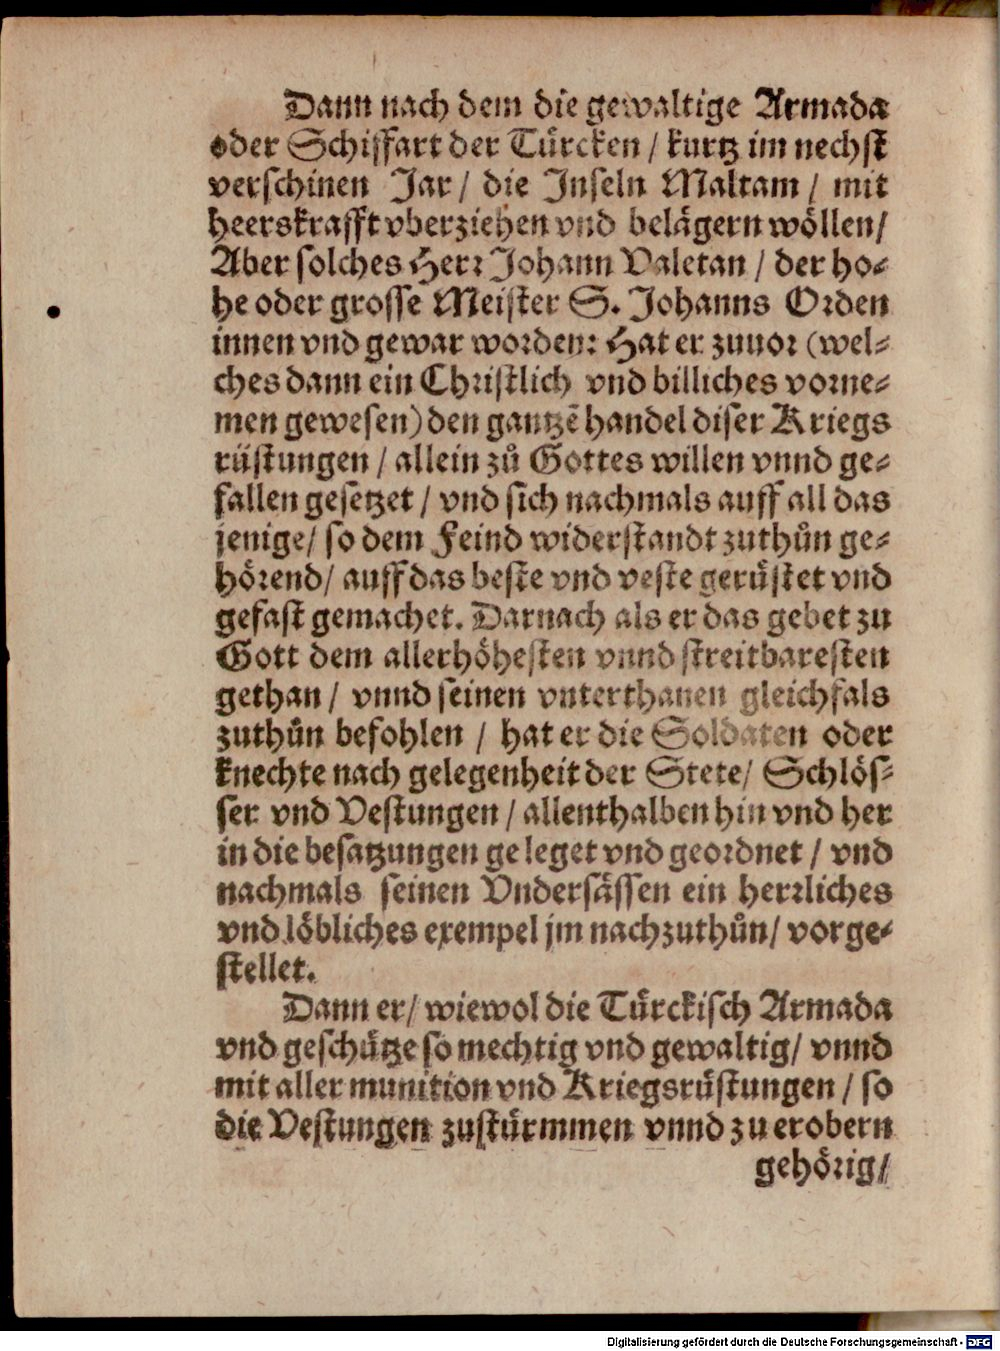 Dann nach dem die gewaltige Armada
oder Schiffart der Türcken / kurtz im nechst
verschinen Jar / die Inseln Maltam / mit
heerskrafft vberziehen vnd belägern wöllen /
Aber solches Herr Johann Valetan / der ho⸗
he oder grosse Meister S. Johanns Orden
innen vnd gewar worden: Hat er zuuor (wel⸗
ches dann ein Christlich vnd billiches vorne⸗
men gewesen) den gantzẽ handel diser Kriegs
rüstungen / allein zů Gottes willen vnnd ge⸗
fallen gesetzet / vnd sich nachmals auff all das
jenige / so dem Feind widerstandt zuthůn ge⸗
hörend / auff das beste vnd veste gerüstet vnd
gefast gemachet. Darnach als er das gebet zu
Gott dem allerhöhesten vnnd streitbaresten
gethan / vnnd seinen vnterthanen gleichfals
zuthůn befohlen / hat er die Soldaten oder
knechte nach gelegenheit der Stete / Schlös⸗
ser vnd Vestungen / allenthalben hin vnd her
in die besatzungen geleget vnd geordnet / vnd
nachmals seinen Vndersässen ein herrliches
vnd löbliches exempel jm nachzuthůn / vorge⸗
stellet.
Dann er / wiewol die Türckisch Armada
vnd geschütze so mechtig vnd gewaltig / vnnd
mit aller munition vnd Kriegsrüstungen / so
die Vestungen zustürmmen vnnd zu erobern
gehörig /
Digitalisierung gefördert durch die Deutsche Forschungsgemeinschaft - DFG